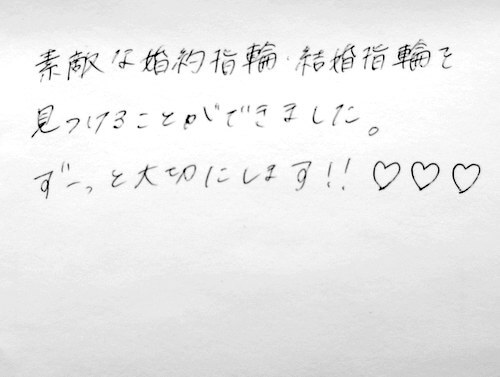 素敵な婚約指輪・結婚指輪を
見つけることができました。
ずーっと大切にします!! ♡♡♡